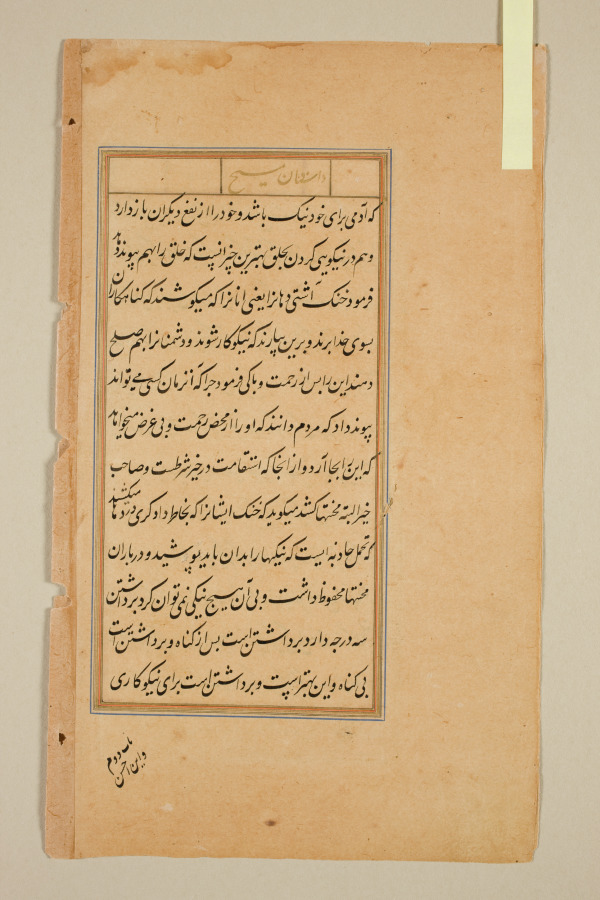 داستان مسیح
که آدمی برای خود نیک باشد و خود را از نفع دیگران باز دارد
و هم در نیکویی کردن بخلق بهترین چیز اینست که خلق را بهم پیوند دهد
فرمود خنک آشتی دهانرا یعنی انانرا که میکوشند که کناهکاران
بسوی خدا برند و برین بیارند که نیکوکار شوند و دشمنانرا بهم صلح
دهند این را پس از رحمت و پاکی فرمود چرا که آنزمان کسی می تواند
پیوند داد که مردم دانند که او را از محض رحمت و بی غرض میخواهد
که این را بجا آرد و از انجا که استقامت در خیر شرطست و صاحب
خیر البته محنتها کشد میکوید که خنک ایشانرا که بخاطر دادکری دردها میکشند
که تحمل جادبه ایست که نیکیها را بدان باید پوشید و در باران
محنتها محفوظ داشت و بی آن هیچ نیکی نمی توان کرد برداشتن
سه درجه دارد برداشتن است پس از کناه و برداشتن است
بی کناه و این بهتر است و برداشتن است برای نیکوکاری
و این احسن
باب دوم